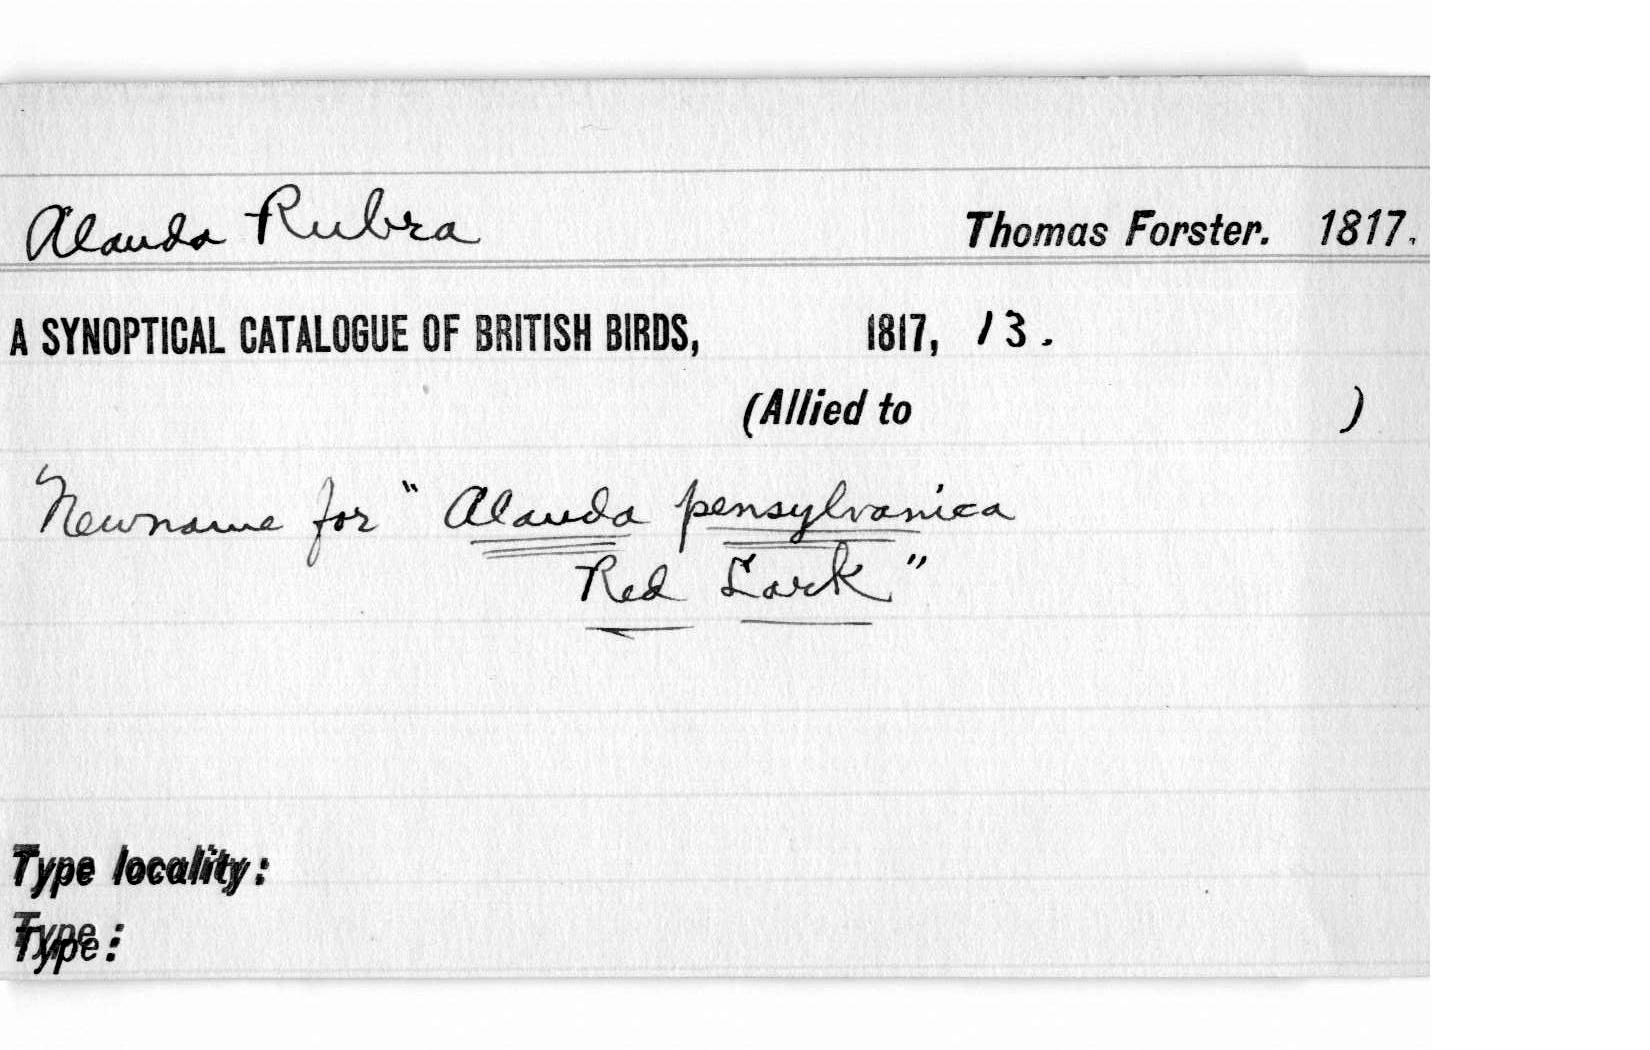 Alauda Rubra Thomas Forster. 1817.
A SYNOPTICAL CATALOGUE OF BRITISH BIRDS, 1817, 13.
(Allied to )
Newname for "Alauda pensylvanica
Red Lark"
Type locality:
Type: